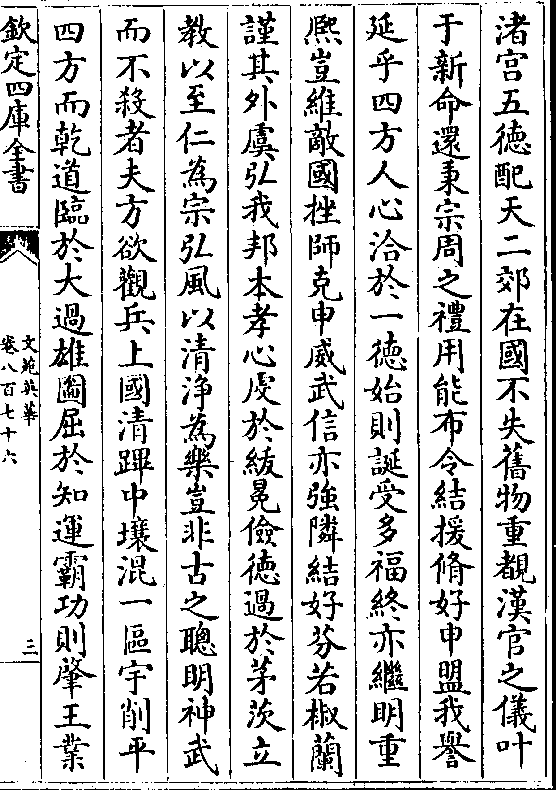 渚宫五徳配天二郊在國不失舊物重覩漢官之儀叶
于新命還秉宗周之禮用能布令結援脩好申盟我譽
延乎四方人心洽於一徳始則誕受多福終亦繼明重
熈豈維敵國挫師克申威武信亦強隣結好芬若椒蘭
謹其外虞弘我邦本孝心虔於紱冕儉徳過於茅茨立
教以至仁為宗弘風以清浄為樂豈非古之聰明神武
而不殺者夫方欲觀兵上國清蹕中壤混一區宇削平
四方而乾道臨於大過雄圖屈於知運霸功則肇王業
欽定四庫全書
文苑英華
卷八百七十六
三